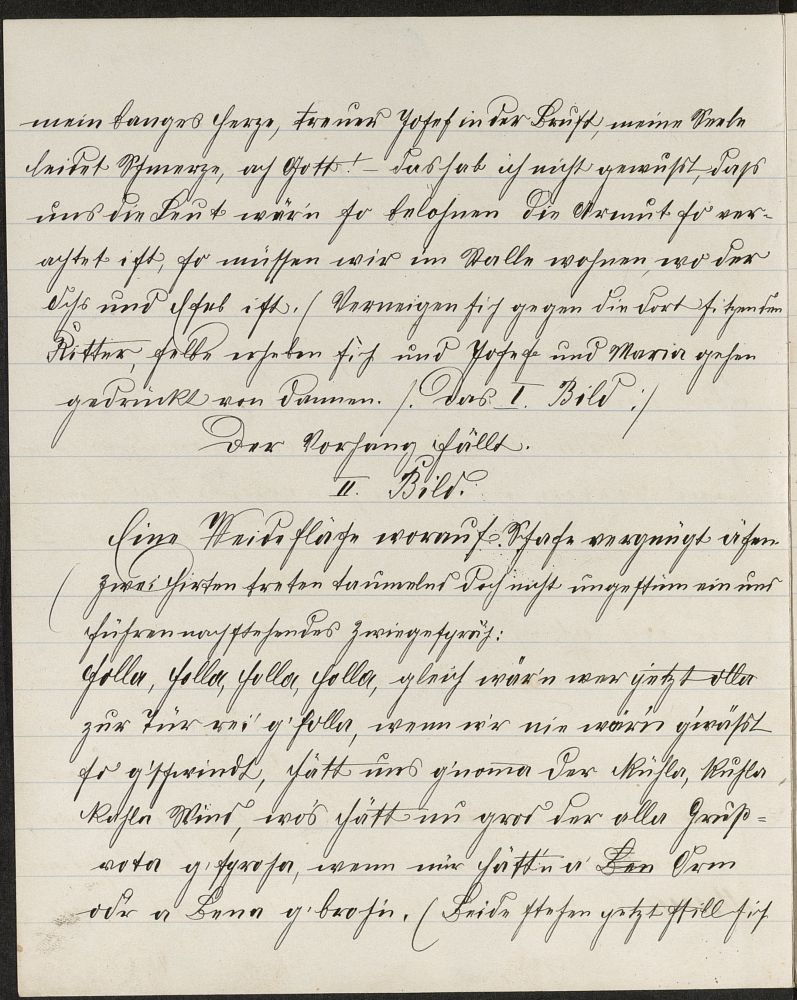 mein banges Herze, treuer Josef in der Brust, meine Seele
leidet Schmerze, ach Gott! – das hab ich nicht gewußt, daß
uns die Leut wär'n so belohnen die Armut so ver-
achtet ist, so müssen wir im Stalle wohnen, wo der
Ochs und Esel ist. / Verneigen sich gegen die dort sitzenden
Ritter, selbe erheben sich und Josef und Maria gehen
gedrückt von dannen. /. Das I. Bild :/
Der Vorhang fällt.
II. Bild.
Eine Weidefläche worauf Schafe vergnügt äsen.
( Zwei Hirten treten taumelnd doch nicht ungestüm ein und
führen nachstehendes Zwiegespräch:
Holla, holla, holla, holla, gleich wär'n wer jetzt olla
zur Tür rei' g'folla, wenn wir nie wär'n g'wäßt
so g'schwindt, hätt uns g'nomma der Kühla, Kuhla
Kahla Wind, wos hätt nu grod der alla Gruß-
vota g'sprocha, wenn mir hätt'n a' Ben Orm
od'r a Bena g'broch'n. ( Beide stehen jetzt still sich